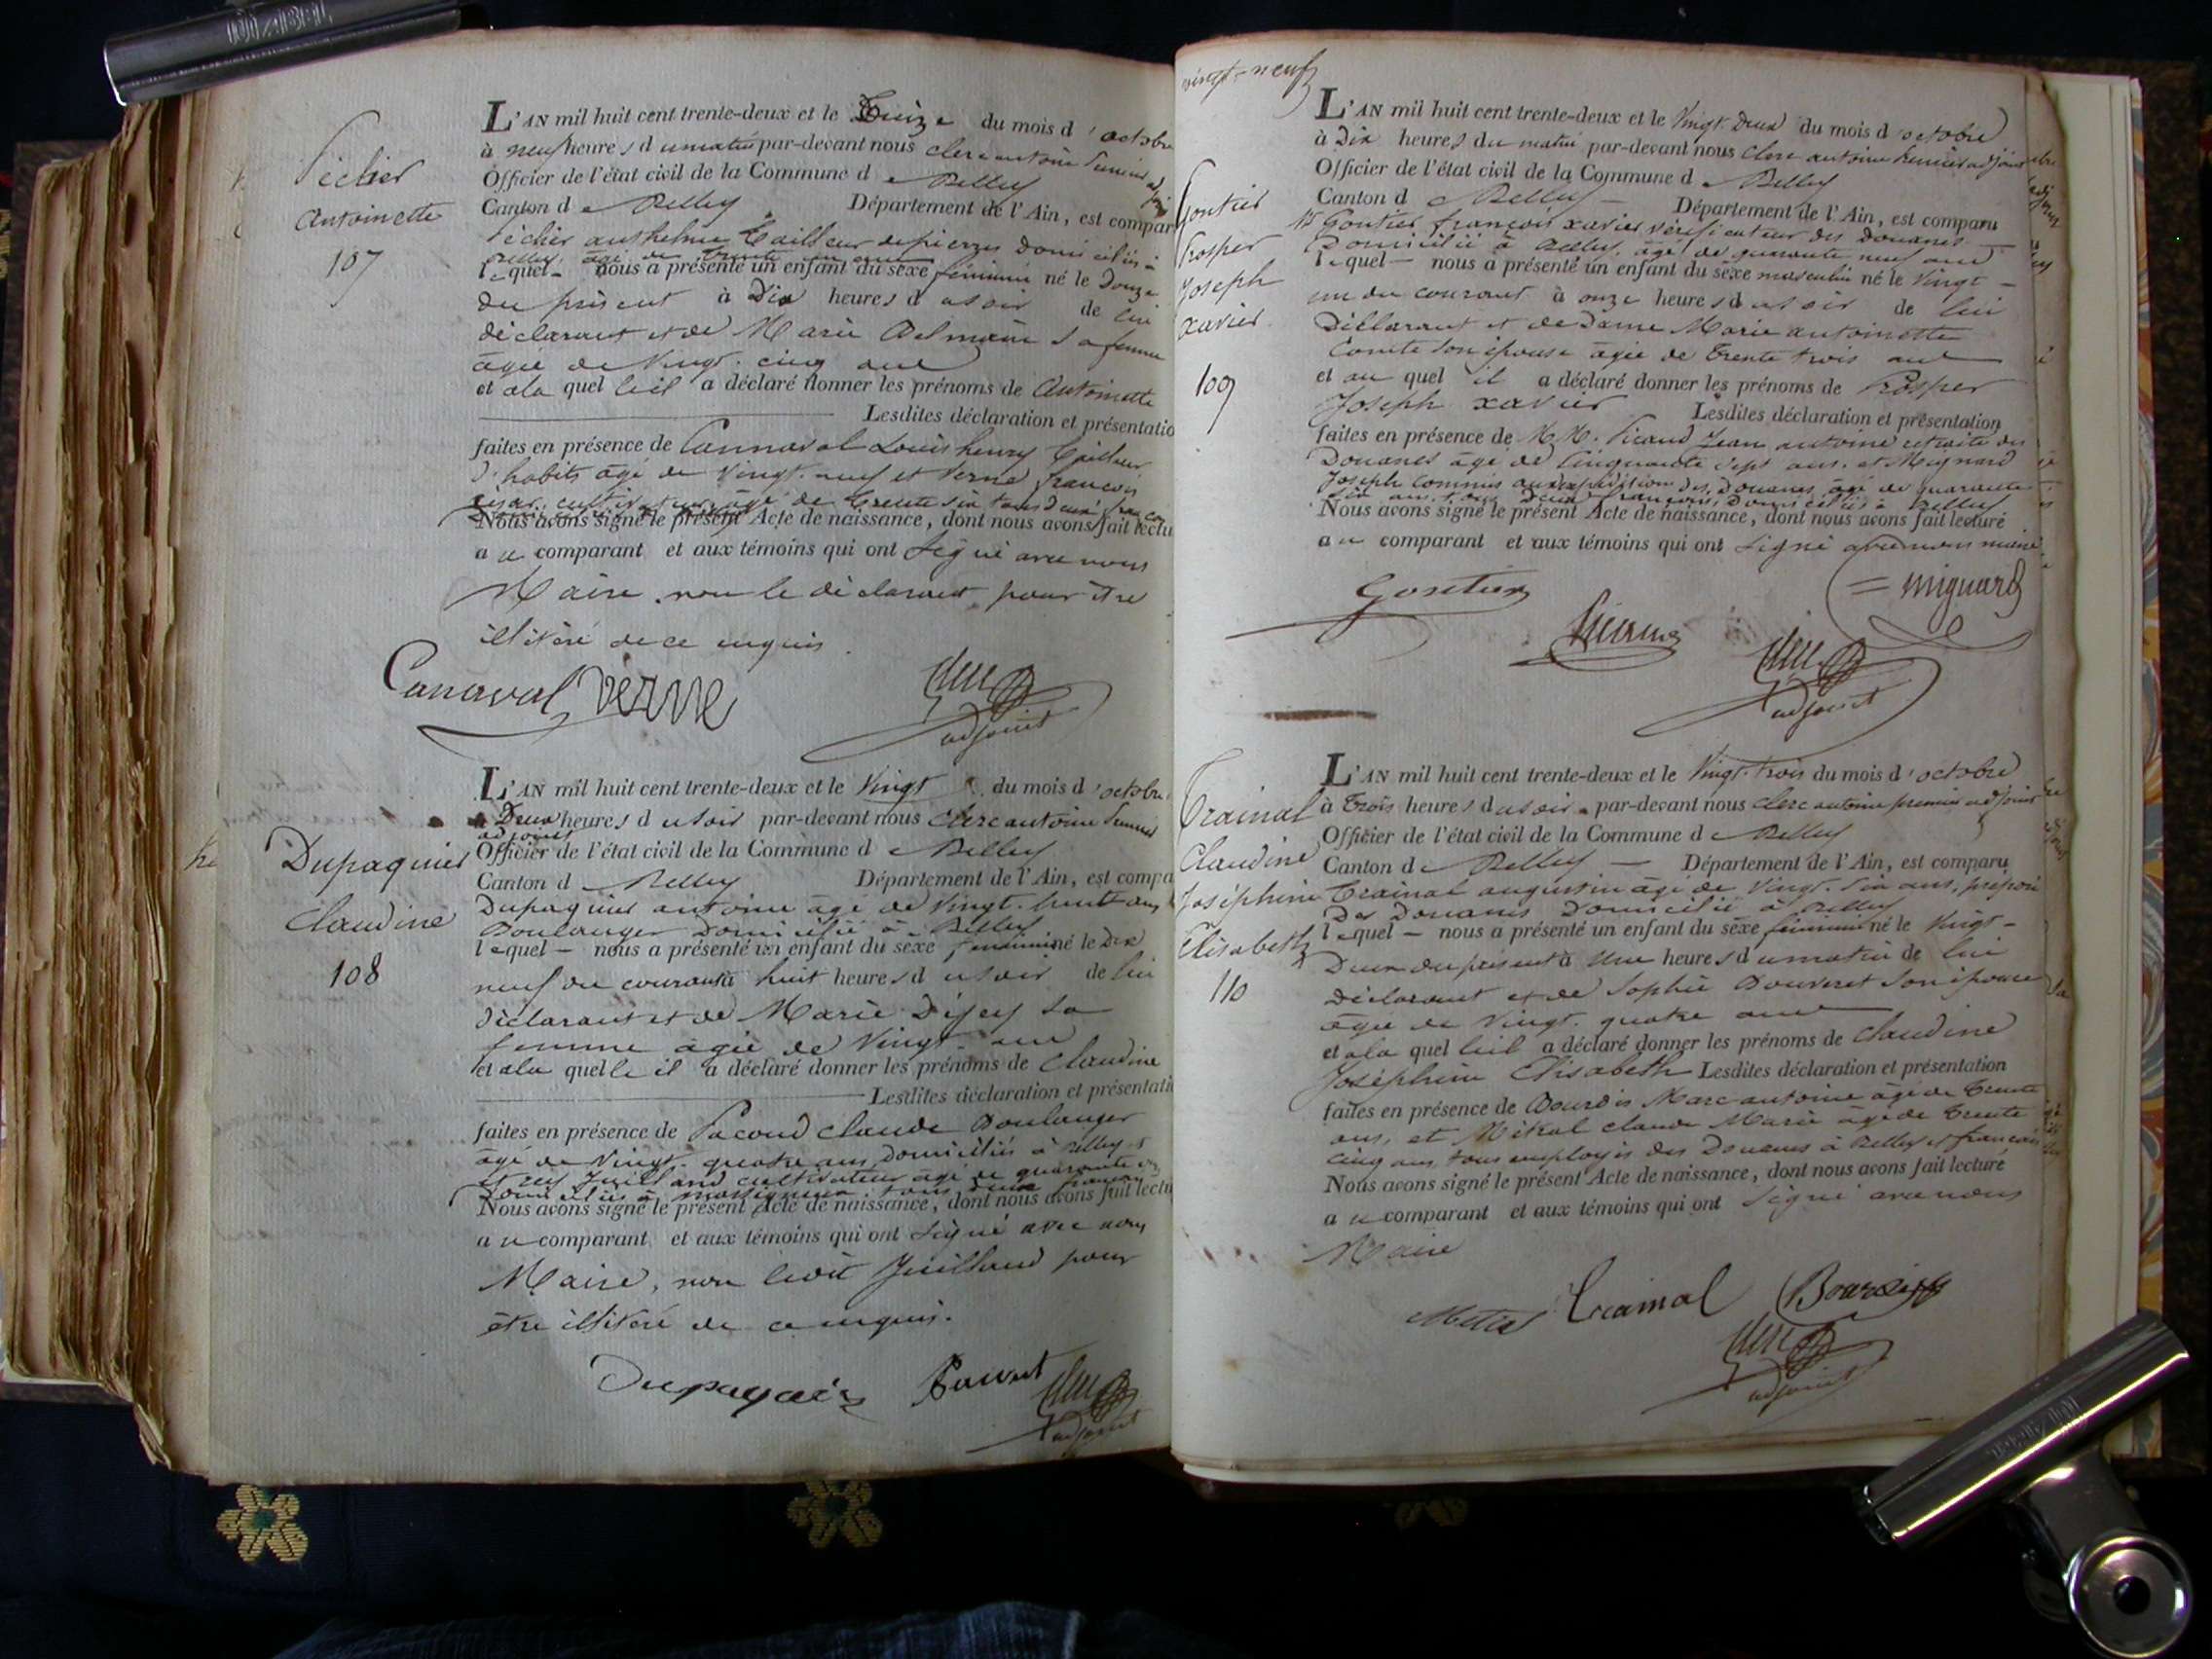 Pechier
Antoinette
107
L'AN mil huit cent trente-deux et le Treize du mois d'octobre
à neuf heures du matin par-devant nous clerc antoine Premier
Officier de l'état civil de la Commune de Belley
Canton de Belley Département de l'Ain, est compar
Pechier anthelme tailleur de pierres domicilié à
Belley, âgé de trente
lequel nous a présenté un enfant du sexe féminin né le Douze
du présent à Dix heures du soir de lui
déclarant et de Marie sa femme
âgée de Vingt-cinq ans
et à la quelle il a déclaré donner les prénoms de Antoinette
Lesdites déclaration et présentatio
faites en présence de Cannaval Louis henry tailleur
d'habits âgé de Vingt-neuf et Verne françois
cultivateur âgé de trente six tous deux
Nous avons signé le présent Acte de naissance, dont nous avons fait lectu
au comparant et aux témoins qui ont signé avec nous
Maire, non le déclarant pour être
illitéré de ce enquis.
Canaval Verne Clerc
adjoint
Dupaquier
Claudine
108
L'AN mil huit cent trente-deux et le Vingt du mois d'octobre
à Deux heures du soir par-devant nous Clerc antoine Premier
adjoint
Officier de l'état civil de la Commune de Belley
Canton de Belley Département de l'Ain, est compa
Dupaquier antoine âgé de Vingt-huit ans
Boulanger domicilié à Belley
lequel nous a présenté un enfant du sexe féminin né le Dix
neuf du courant à huit heures du soir de lui
déclarant et de Marie Dijey sa
femme âgée de Vingt ans
et à la quelle il a déclaré donner les prénoms de Claudine
Lesdites déclaration et présentati
faites en présence de Pacoud Claude Boulanger
âgé de Vingt-quatre ans, domicilié à Belley
et Juilland cultivateur âgé de quarante
domicilié à tous deux français
Nous avons signé le présent Acte de naissance, dont nous avons fait lectu
au comparant et aux témoins qui ont signé avec nous
Maire, non ledit Juilland pour
être illitéré de ce enquis.
Dupaquier Clerc
adjoint
vingt-neuf
Gontier
Prosper
Joseph
xavier
109
L'AN mil huit cent trente-deux et le Vingt-Deux du mois d'octobre
à Dix heures du matin par-devant nous clerc antoine Premier adjoint
Officier de l'état civil de la Commune de Belley
Canton de Belley Département de l'Ain, est comparu
Mr Gontier françois xavier Vérificateur des Douanes
Domicilié à Belley, âgé de quarante neuf ans
lequel nous a présenté un enfant du sexe masculin né le Vingt-
un du courant à onze heures du soir de lui
Déclarant et de Dame Marie antoinette
Comte son épouse âgée de trente trois ans
et au quel il a déclaré donner les prénoms de Prosper
Joseph xavier Lesdites déclaration et présentation
faites en présence de M.M. Picaud Jean antoine retraité des
Douanes âgé de Cinquante sept ans, et Mignard
Joseph Commis aux expéditions des Douanes âgé de quarante
six ans, tous deux français, domiciliés à Belley
Nous avons signé le présent Acte de naissance, dont nous avons fait lecture
au comparant et aux témoins qui ont signé avec nous maire
Gontier mignard
Clerc
adjoint
Trainal
Claudine
Joséphine
Elisabeth
110
L'AN mil huit cent trente-deux et le Vingt-trois du mois d'octobre
à Trois heures du soir par-devant nous Clerc antoine premier adjoint
Officier de l'état civil de la Commune de Belley
Canton de Belley Département de l'Ain, est comparu
Trainal augustin âgé de Vingt-six ans, préposé
Des Douanes Domicilié à Belley
lequel nous a présenté un enfant du sexe féminin né le Vingt-
Deux du présent à Une heures du matin de lui
Déclarant et de Sophie Bouveret son épouse
âgée de Vingt-quatre ans
et à la quelle il a déclaré donner les prénoms de Claudine
Joséphine Elisabeth Lesdites déclaration et présentation
faites en présence de Bourdis Marc antoine âgé de trente
ans, et Mitral Claude Marie âgé de trente
cinq ans, tous employés des Douanes à Belley et français
Nous avons signé le présent Acte de naissance, dont nous avons fait lecture
au comparant et aux témoins qui ont signé avec nous
Maire
Trainal Clerc
adjoint